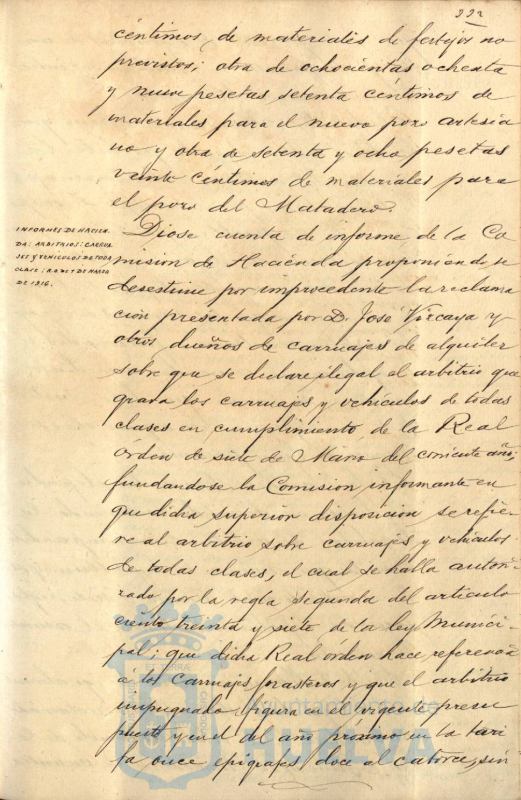 222
céntimos, de materiales de festejos no
previstos; otra de ochocientas ochenta
y nueve pesetas setenta céntimos de
materiales para el nuevo pozo artesia
no y otra de setenta y ocho pesetas
veinte céntimos de materiales para
el pozo del Matadero.
INFORMES DE HACIEN
DA: ARBITRIOS: CARRUA
JES Y VEHICULOS DE TODA
CLASE: R.O. DE 7 DE MARZO
DE 1916.
Diose cuenta de informe de la Co
mision de Hacienda proponiendo se
desestime por improcedente la reclama
ción presentada por D. José Vizcaya y
otros dueños de carruajes de alquiler
sobre que se declare ilegal el arbitrio que
grava los carruajes y vehiculos de todas
clases en cumplimiento de la Real
órden de siete de Marzo del corriente año;
fundandose la Comision informante en
que dicha superior disposicion se refie
re al arbitrio sobre carruajes y vehiculos
de todas clases, el cual se halla autori
zado por la regla segunda del articulo
ciento treinta y siete de la ley Munici
pal; que dicha Real orden hace referencia
á los carruajes forasteros y que el arbitrio
impugnado figura en el vigente presu
puesto y en el del año próximo en la tari
fa once epigrafes doce al catorce, sin
Ayuntamiento de
HUELVA